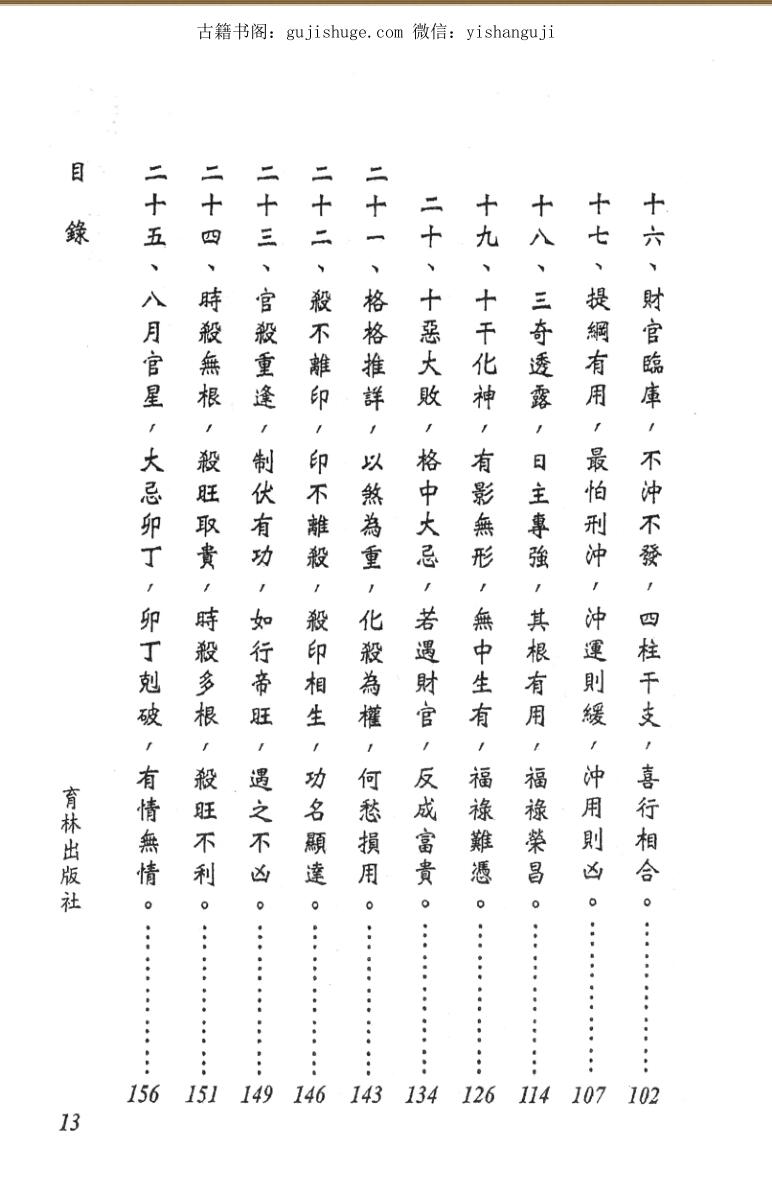 古籍书阁：gujishuge.com 微信：yishanguji
十六、財官臨庫，不沖不發，四柱干支，喜行相合。……………………102
十七、提綱有用，最怕刑沖，沖運則緩，沖用則凶。……………………107
十八、三奇透露，日主專強，其根有用，福祿榮昌。……………………114
十九、十干化神，有影無形，無中生有，福祿難憑。……………………126
二十、十惡大敗，格中大忌，若遇財官，反成富貴。……………………134
二十一、格格推詳，以煞為重，化殺為權，何愁損用。……………………143
二十二、殺不離印，印不離殺，殺印相生，功名顯達。……………………146
二十三、官殺重逢，制伏有功，如行帝旺，遇之不凶。……………………149
二十四、時殺無根，殺旺取貴，時殺多根，殺旺不利。……………………151
二十五、八月官星，大忌卯丁，卯丁剋破，有情無情。……………………156
目錄
育林出版社
13